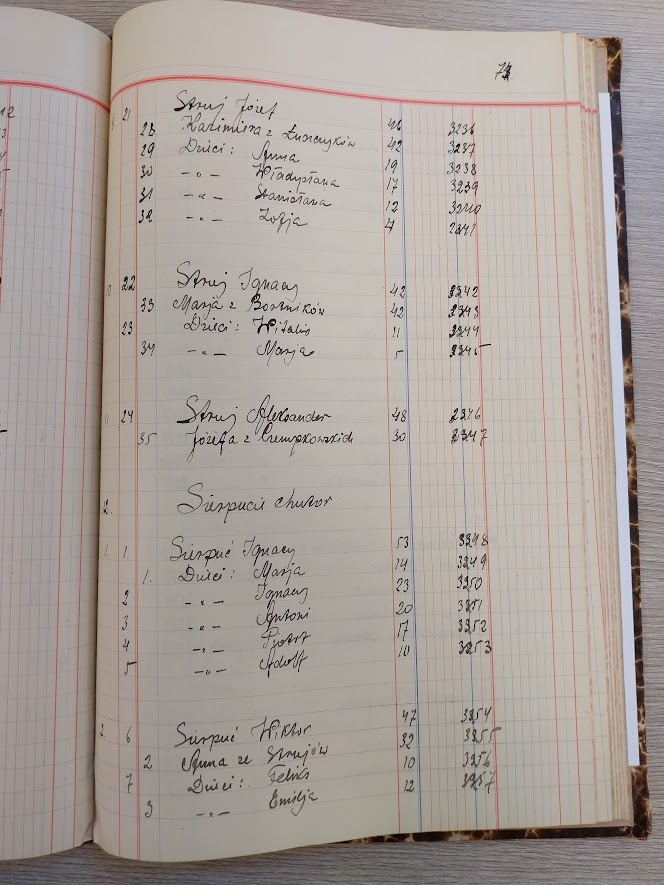 21 Struj Józef 46 3236
28 Kazimiera z 42 3237
29 Dzieci: Anna 19 3238
30 -„- Władysława 17 3239
31 -„- Stanisława 12 3240
32 -„- Zofja 7 3241
10 22 Struj Ignacy 42 3242
33 Marja z Bortników 42 3243
23 Dzieci: Witalis 11 3244
34 -„- Marja 5 3245
11 24 Struj Aleksander 48 3246
35 Józefa z 30 3247
12. Sierpucie chutor
1. 1. Sierpuć Ignacy 53 3248
1. Dzieci: Marja 14 3249
2 -„- Ignacy 23 3250
3 -„- Antoni 20 3251
4 -„- Piotr 17 3252
5 -„- Adolf 10 3253
2. 6 Sierpuć Wiktor 47 3254
2 Anna ze Strujów 32 3255
7 Dzieci: Feliks 10 3256
3 -„- Emilja 12 3257